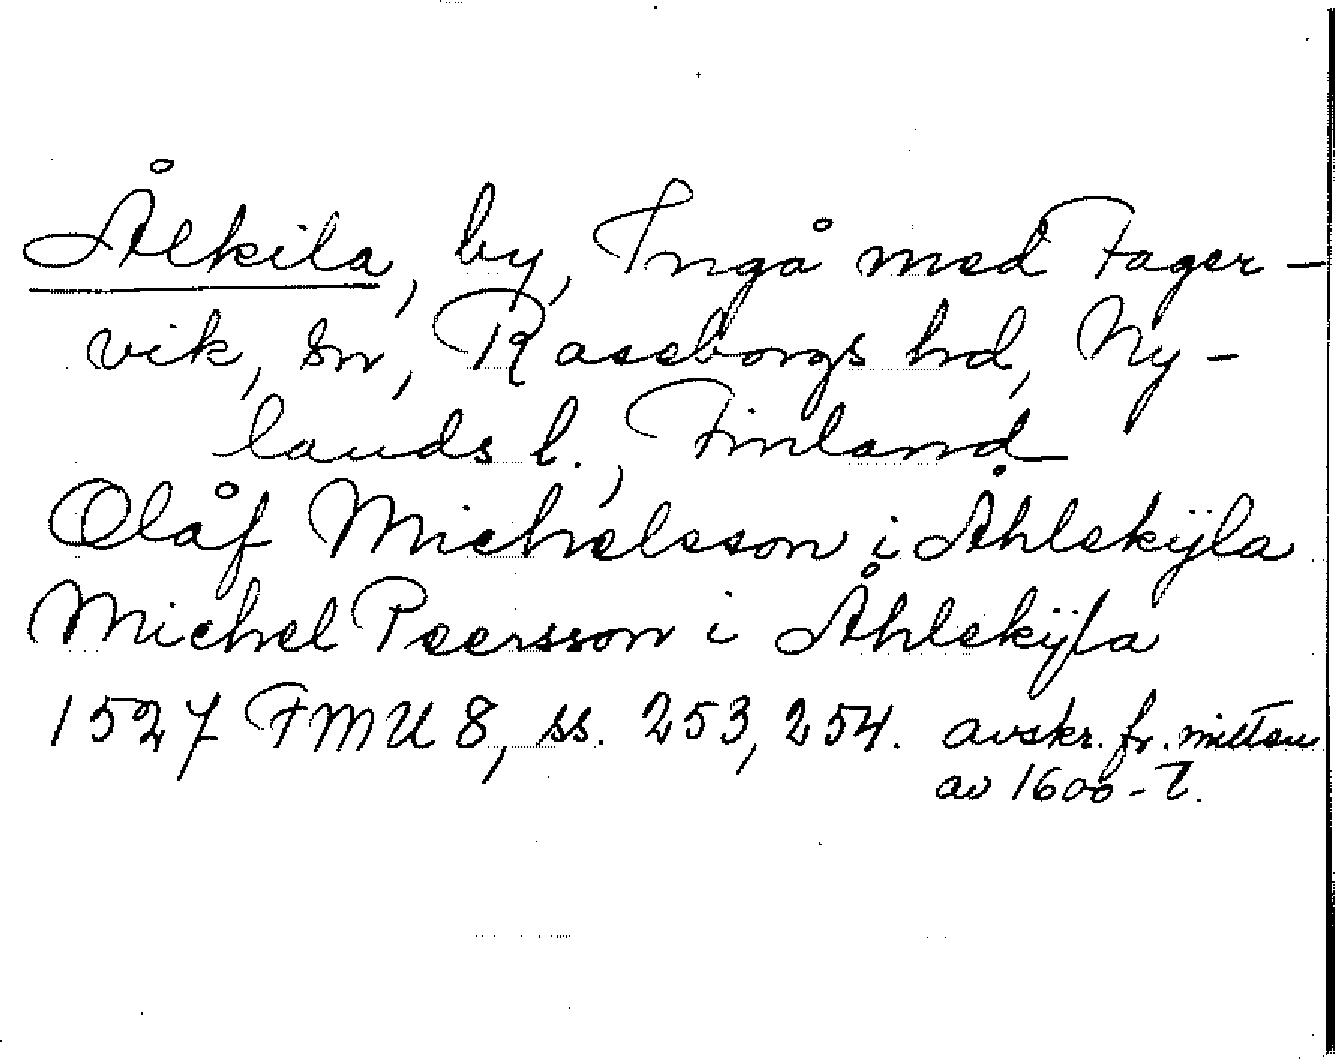 Ålkila, by, Ingå med Fager-
vik, sn, Raseborgs hd, Ny-
lands l., Finland
Olåf Michelsson i Åhlekÿla
Michel Peersson i Åhlekÿla
1527 FMU 8, ss. 253, 254. avskr. fr. mitten
av 1600-t.